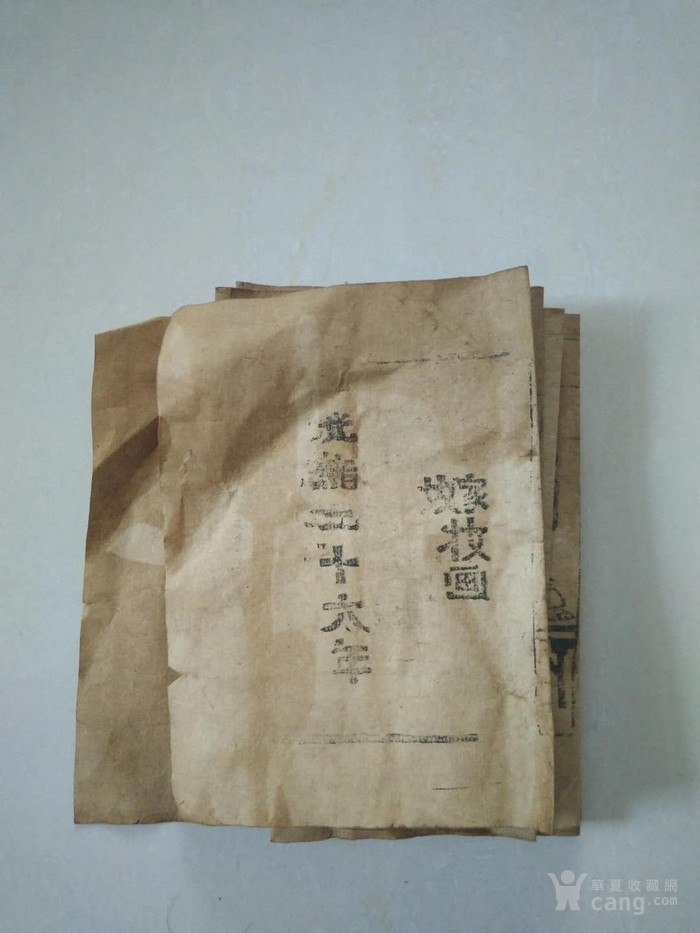 嫁技画
光緒二十六年
華夏收藏網
cang.com